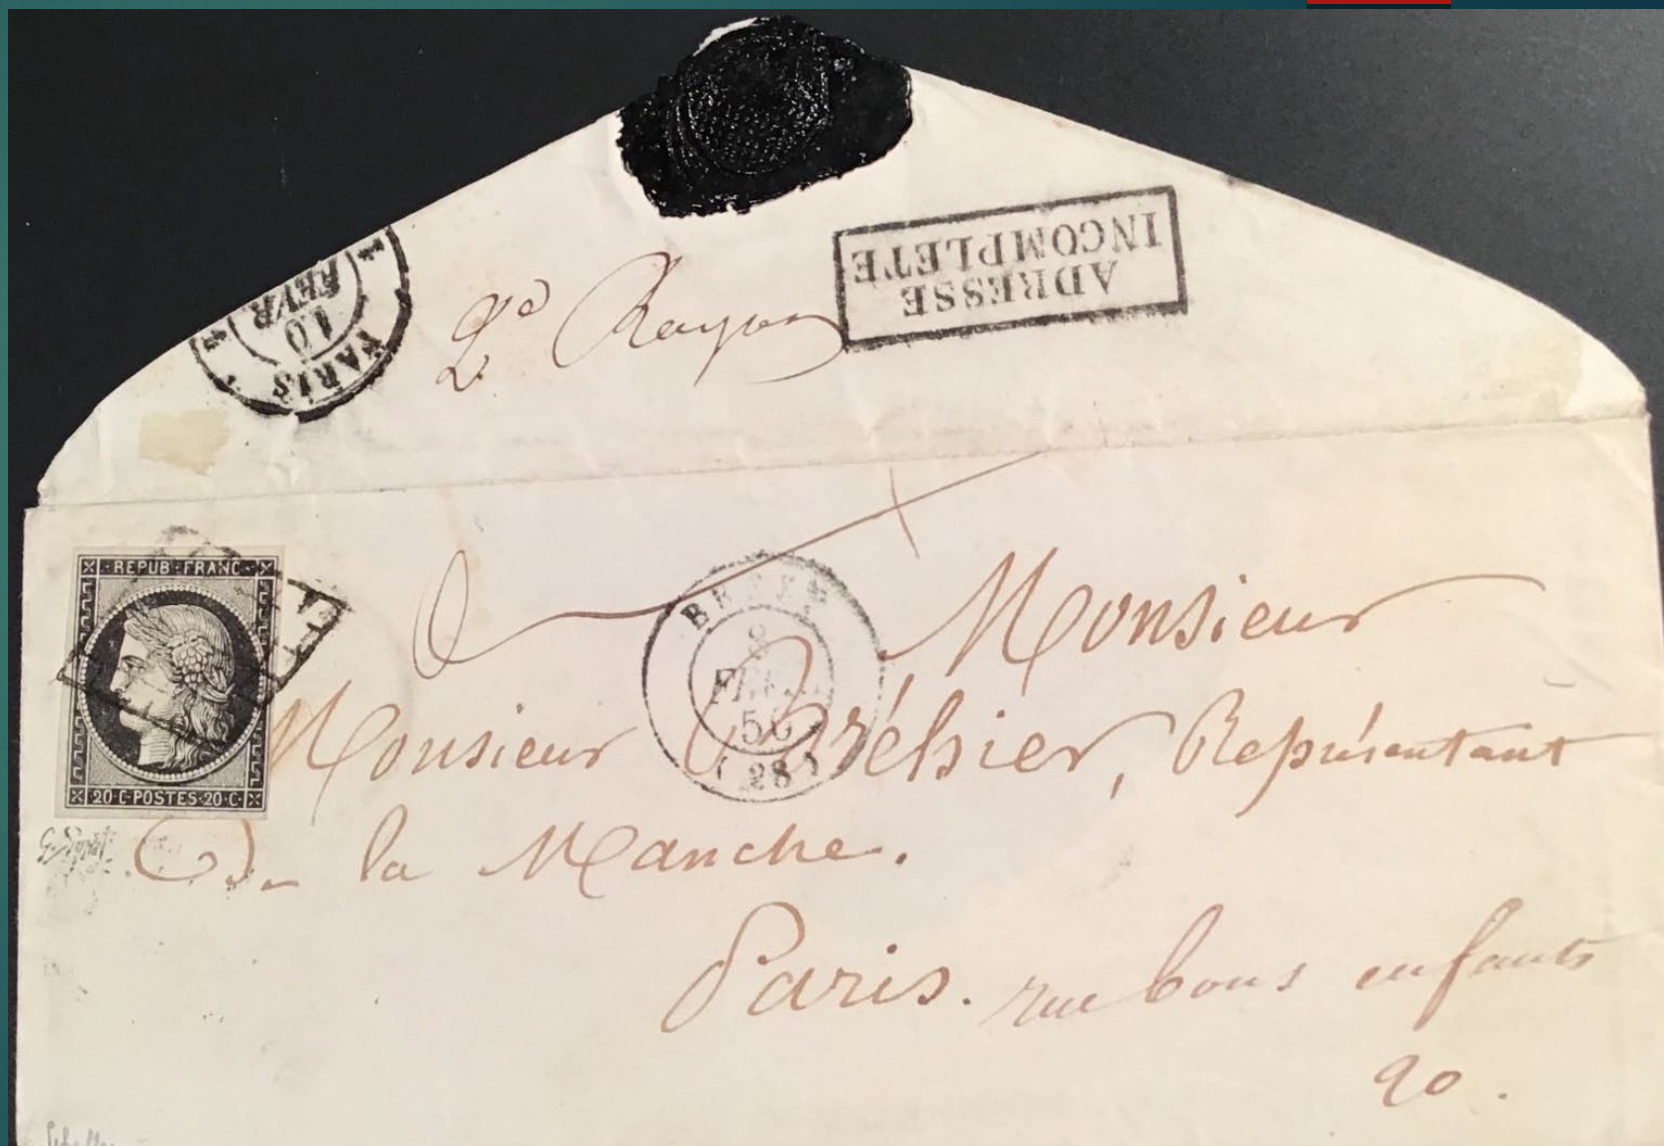 ADRESSE
INCOMPLETE
PARIS
10
FEVR
2d Rayon
REPUB FRANC
20 C POSTES 20 C
8
50
(28)
A Monsieur
Monsieur Bréhier, Représentant
De la Manche.
Paris. rue bons enfants
20.